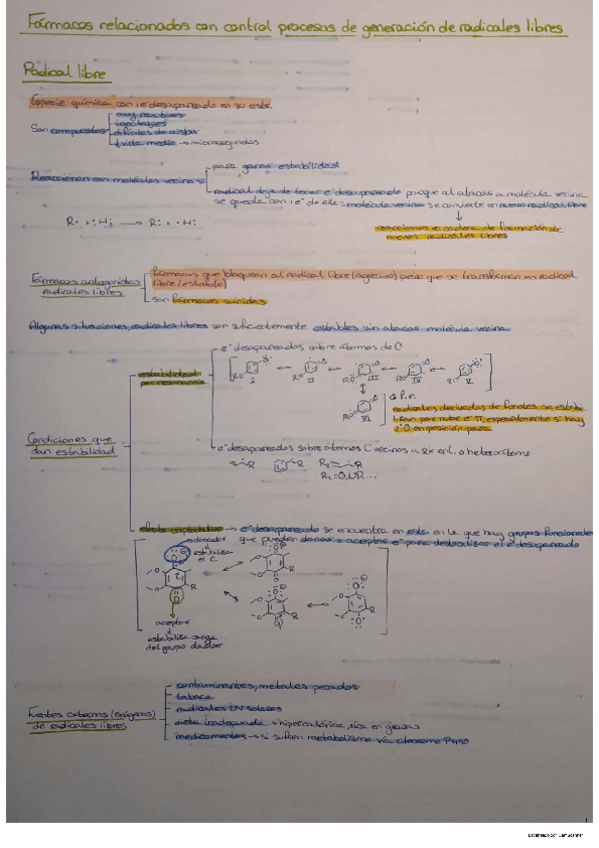 Fármacos relacionados con control procesos de generación de radicales libres
Radical libre
Especie química con 1 e⁻ desapareado en su estr.
Son compuestos
muy reactivos
inestables
difíciles de aislar
↓ vida media → microsegundos
Reaccionan con moléculas vecinas
para ganar estabilidad
radical deja de tener e⁻ desapareado porque al atacar a molécula vecina
se queda con 1 e⁻ de ella = molécula vecina se convierte en nuevo radical libre
R• + H → R: + •H
reacciones en cadena de formación de
nuevos radicales libres
Fármacos antagonistas
radicales libres
fármacos que bloquean al radical libre (agresivo) pero que se transforman en radical
libre (estable)
son fármacos suicidas
Algunas situaciones, radicales libres son suficientemente estables sin atacar molécula vecina
Condiciones que
dan estabilidad
estabilidad
por resonancia
e⁻ desapareados sobre átomos de O
RO I ↔ II ↔ RO III ↔ RO IV ↔ RO V
RO VI
radicales derivados de fenoles se estabi
lizan por nube e⁻ π, especialmente si hay
2º O en posición para
e⁻ desapareados sobre átomos C vecinos a 2x enl. o heteroátomo
R₁ = O, N, R...
efecto captodativo → e⁻ desapareado se encuentra en estr. en la que hay grupos funcionales
que puedan donar o aceptar e⁻ para deslocalizar el e⁻ desapareado
donador
estabiliza
el C
aceptor
estabiliza carga
del grupo dador
Fuentes externas (exógenas)
de radicales libres
contaminantes, metales pesados
tabaco
radicales UV solares
dieta inadecuada → hipercalórica, rica en grasas
medicamentos → si sufren metabolismo vía citocromo P450